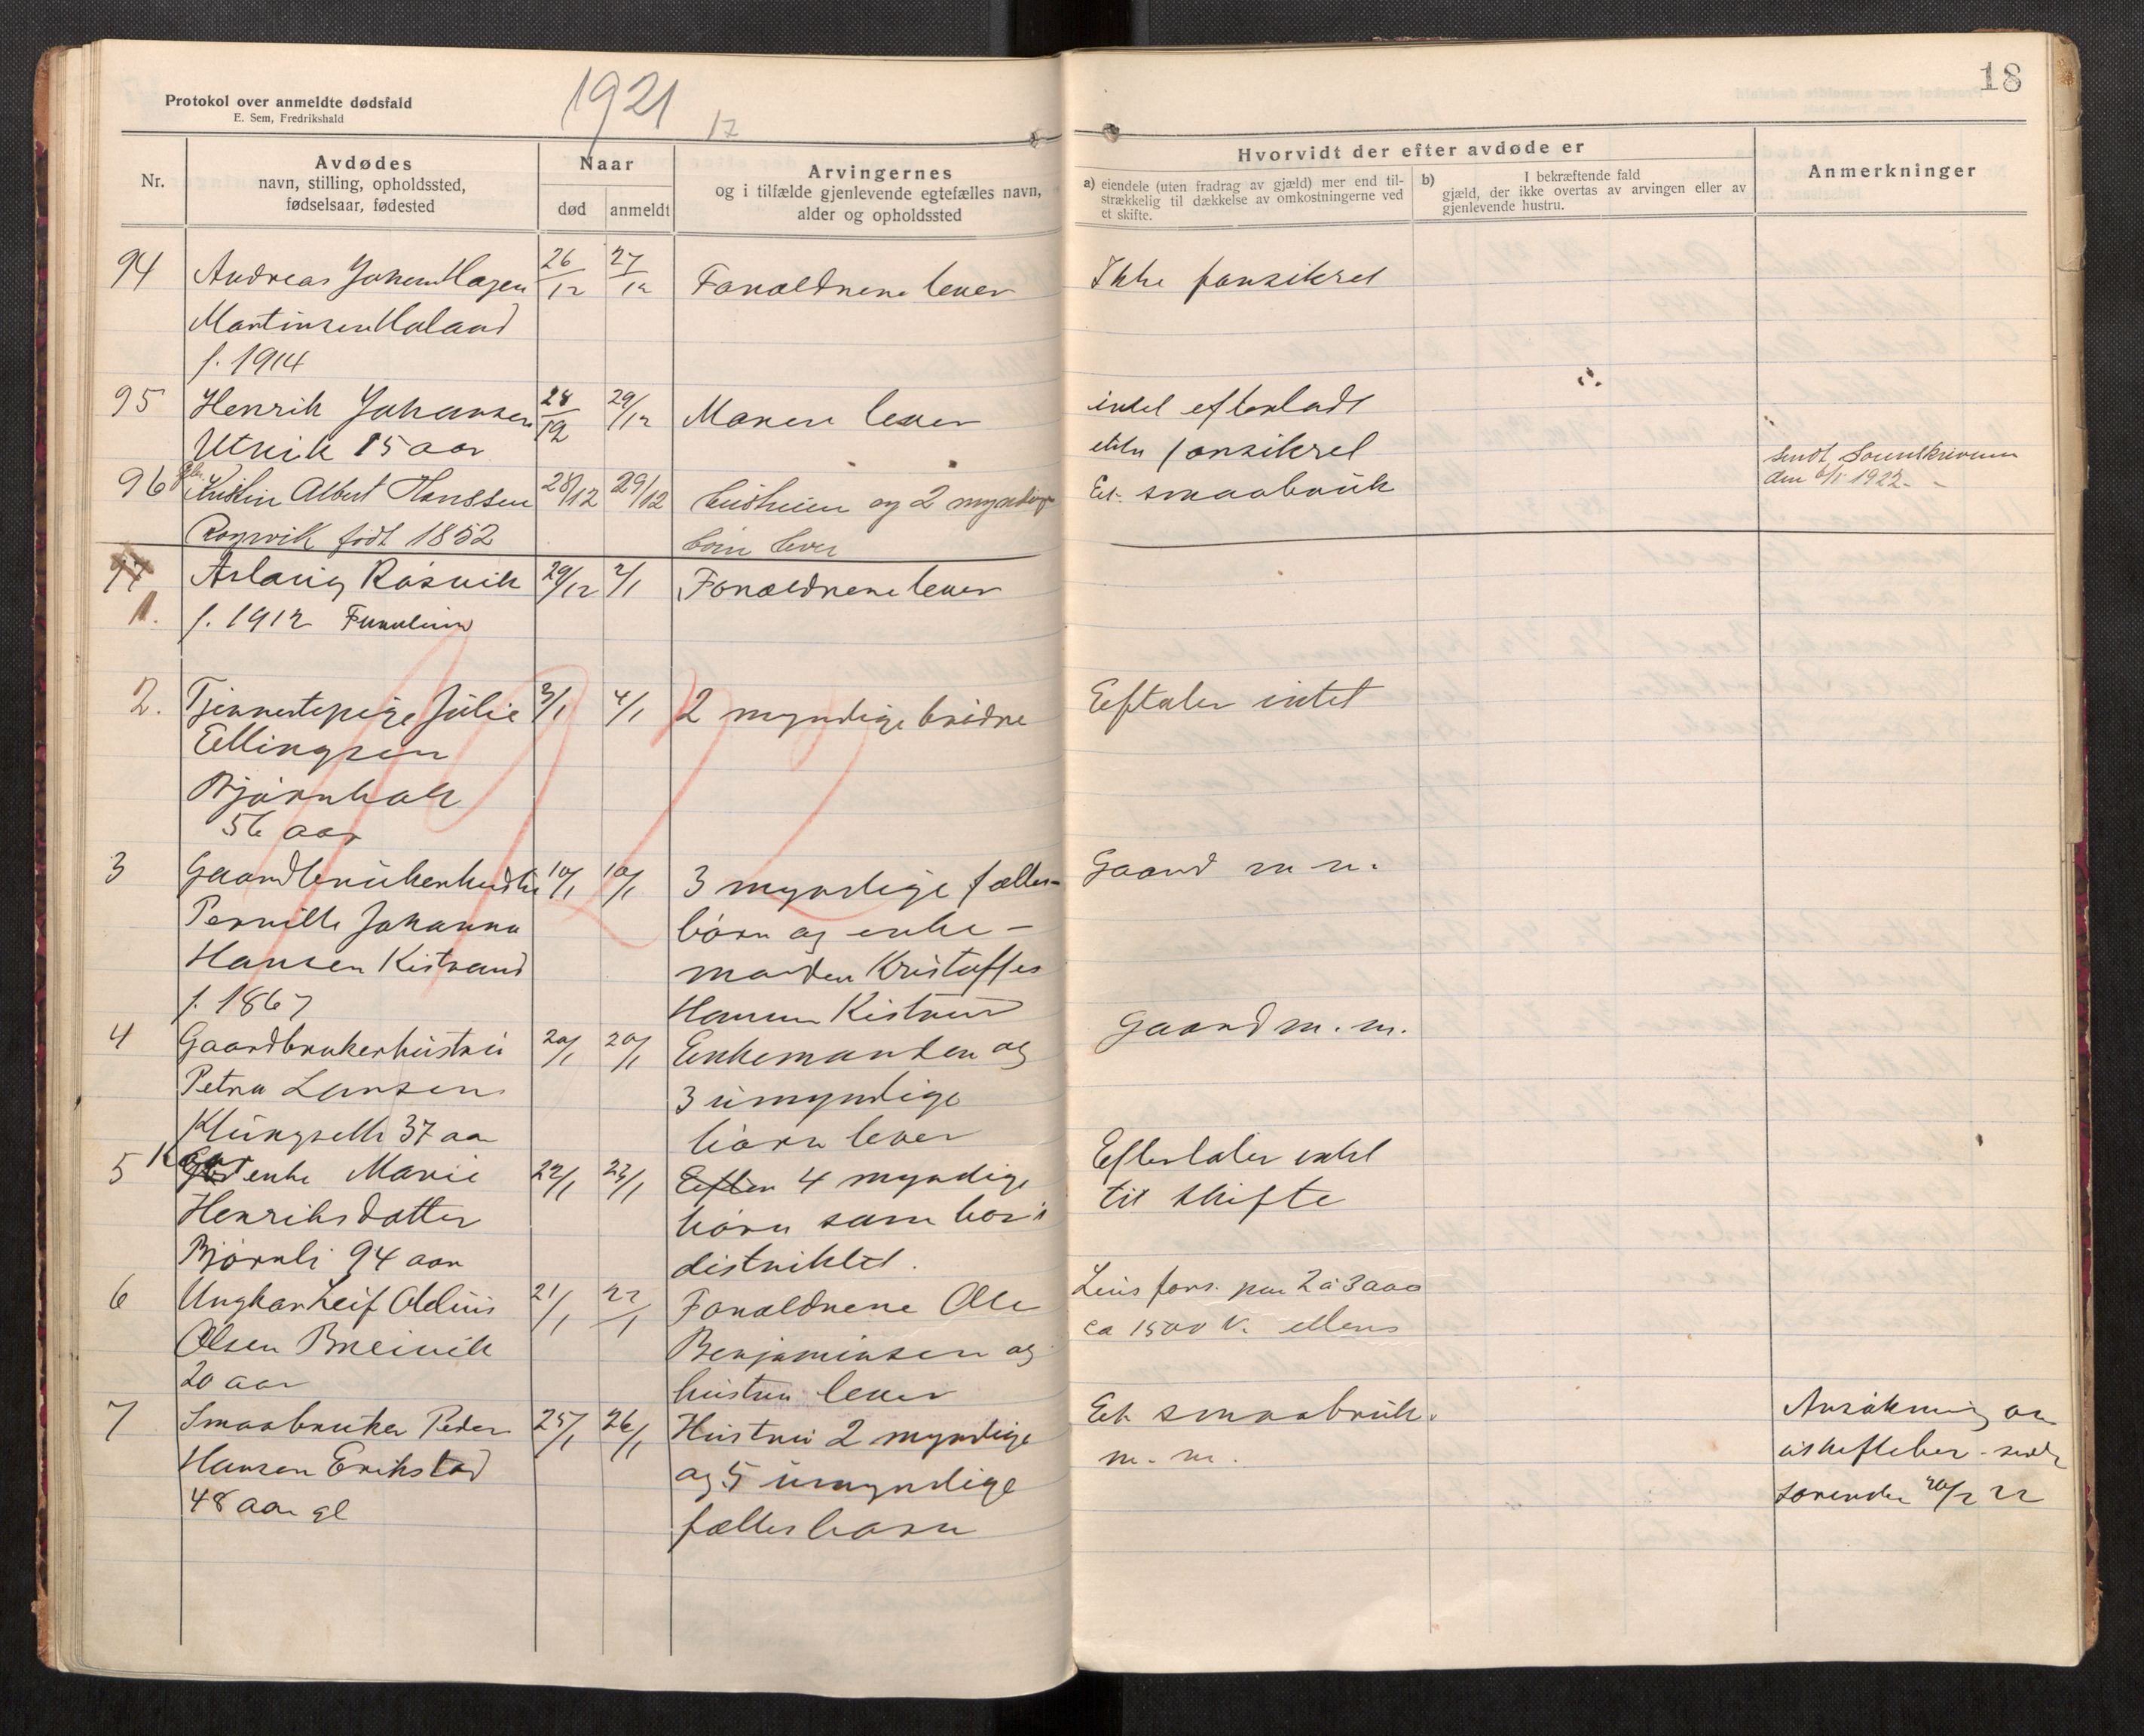 18
Protokol over anmeldte dødsfald
E. Sem, Fredrikshald
1921
17
Nr.
Avdødes
navn, stilling, opholdssted,
fødselsaar, fødested
Naar
død
anmeldt
Arvingernes
og i tilfælde gjenlevende egtefælles navn,
alder og opholdssted
Hvorvidt der efter avdøde er
a) eiendele (uten fradrag av gjæld) mer end til-
strækkelig til dækkelse av omkostningerne ved
et skifte.
b) I bekræftende fald
gjæld, der ikke overtas av arvingen eller av
gjenlevende hustru.
Anmerkninger
94 Andreas Johan Hagen 26/12 27/12 Foræeldrene lever Ikke forsikret
Martinsen
f. 1914
95 Henrik Johansen 28/12 29/12 Moren lever intet efterladt
Utvik 15 aar forsikret
96 Kristin Albert Hanssen 28/12 29/12 hustruen og 2 myndige Et smaabruk sendt Sorenskriveren
den 6/1 1922.
Røsvik født 1852 børn lever
97 Aslaug Røsvik 29/12 2/1 Foræeldrene lever
1. f. 1912
1922
2. Tjenestepige Julie 3/1 4/1 2 myndige brødre Eftaler intet
Ellingsen
Bjørnbak
56 aar
3 Gaardbrukerhustru 10/1 10/1 3 myndige fælles- Gaard m m.
Pernille Johanna børn og enke-
Hansen Kistrand manden Kristoffer
f. 1867 Hansen Kistrand
4 Gaardbrukerhustru 20/1 20/1 Enkemanden og Gaard m. m.
Petra Larsen 3 umyndige
Klungseth 37 aar børn lever
5 enke Marie 22/1 23/1 4 myndige Efterlater intet
Henriksdatter børn som bor i til skifte
Bjørnli 94 aar distriktet.
6 Ungkar Leif Aldius 21/1 22/1 Foræeldrene Ole Livs fors. paa 2 à 3000
Olsen Breivik Benjaminsen og ca 1500 k. ellers
20 aar hustru lever
7 Smaabruker Peder 25/1 26/1 Hustru 2 myndige Et smaabruk. Ansøkning om
Hansen Erikstad og 5 umyndige m. m. uskiftebev. sendt
48 aar gl fælles barn 20/2 22